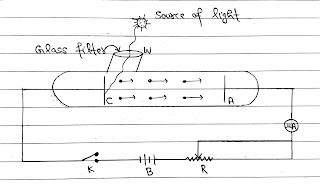 Source of light
Glass filter
W
C
A
μA
K
B
R